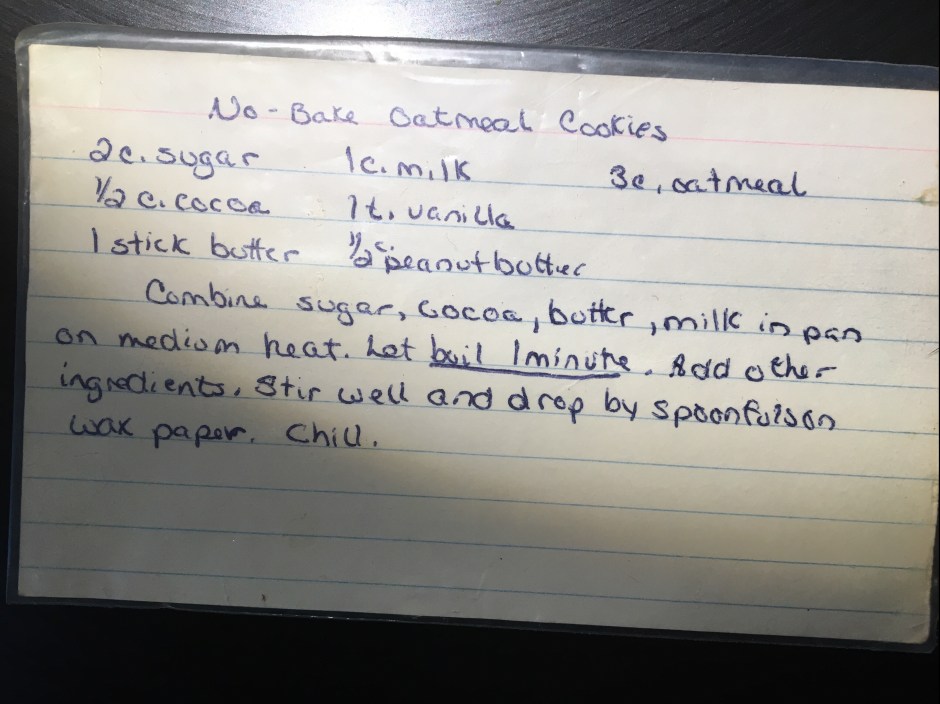 No-Bake Oatmeal Cookies
2c. sugar 1c. milk 3c. oatmeal
1/2 c. cocoa 1t. vanilla
1 stick butter 1/2 c. peanut butter
Combine sugar, cocoa, butter, milk in pan
on medium heat. Let boil 1 minute. Add other
ingredients. Stir well and drop by spoonfuls on
wax paper. Chill.